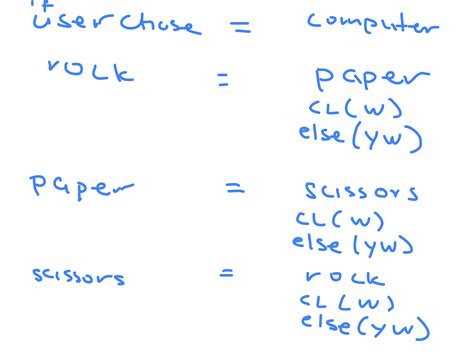 if
userchose = computer
rock = paper
CL(W)
else(YW)
paper = scissors
CL(W)
else(YW)
scissors = rock
CL(W)
else(YW)